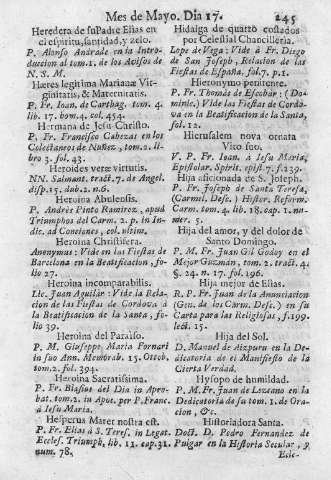 Mes de Mayo. Dia 17. 245
Heredera de su Padre Elias en
el espiritu, santidad, y zelo.
P. Alonso Andrade en la Intro-
duccion al tom. 1. de los Avisos de
N. S. M.
Hæres legitima Marianæ Vir-
ginitatis, & Maternitatis.
P. Fr. Ioan. de Carthag. tom. 4.
lib. 17. hom. 4. col. 454.
Hermana de Jesu Christo.
P. Fr. Francisco Cabezas en los
Colectaneos de Nuñez, tom. 2. li-
bro 3. fol. 43.
Heroides veræ virtutis.
NN. Salmant. tract. 7. de Angel.
disp. 15. dub. 2. n. 6.
Heroina Abulensis.
P. Andrès Pinto Ramirez, apud
Triumphos del Carm. 2. p. in In-
dic. ad Conciones, col. ultim.
Heroina Christifera.
Anonymus: Vide en las Fiestas de
Barcelona en la Beatificacion, fo-
lio 27.
Heroina incomparabilis.
Lic. Juan Aguilar: Vide la Rela-
cion de las Fiestas de Cordova à
la Beatificacion de la Santa, fo-
lio 39.
Heroina del Paraiso.
P. M. Giuseppe, Maria Fornari
in suo Ann. Memorab. 15. Octob.
tom. 2. fol. 394.
Heroina Sacratissima.
P. Fr. Blasius del Dia in Apro-
bat. tom. 2. in Apoc. per P. Franc.
à Iesu Maria.
Hesperus Mater nostra est.
P. Fr. Elias à S. Teres. in Legat.
Eccles. Triumph. lib. 11. cap. 31.
num. 78.
Hidalga de quatro costados
por Celestial Chancilleria.
Lope de Vega: Vide à Fr. Diego
de San Joseph, Relacion de las
Fiestas de España, fol. 7. p. 1.
Hieronymo penitente.
P. Fr. Thomàs de Escobar: (Do-
minic.) Vide las Fiestas de Cordo-
va en la Beatificacion de la Santa,
fol. 12.
Hierusalem nova ornata
Viro suo.
V. P. Fr. Ioan. à Iesu Maria,
Epistolar. Spirit. epist. 7. f. 139.
Hija aficionada de S. Joseph.
P. Fr. Joseph de Santa Teresa,
(Carmel. Desc.) Histor. Reform.
Carm. tom. 4. lib. 18. cap. 1. nu-
mer. 5.
Hija del amor, y del dolor de
Santo Domingo.
P. M. Fr. Juan Gil Godoy en el
Mejor Guzmàn, tom. 2. tract. 4.
§. 24. n. 17. fol. 196.
Hija mejor de Elias.
R. P. Fr. Juan de la Anunciacion
(Gen. de los Carm. Desc.) en su
Carta para las Religiosas, f. 199.
lect. 15.
Hija del Sol.
D. Manuel de Aizpuru en la De-
dicatoria de el Manifiesto de la
Cierta Verdad.
Hysopo de humildad.
P. M. Fr. Juan de Lozano en la
Dedicatoria de su tom. 1. de Ora-
cion, &c.
Historiadora Santa.
Doct. D. Pedro Fernandez de
Pulgar en la Historia Secular, y
Ecle-